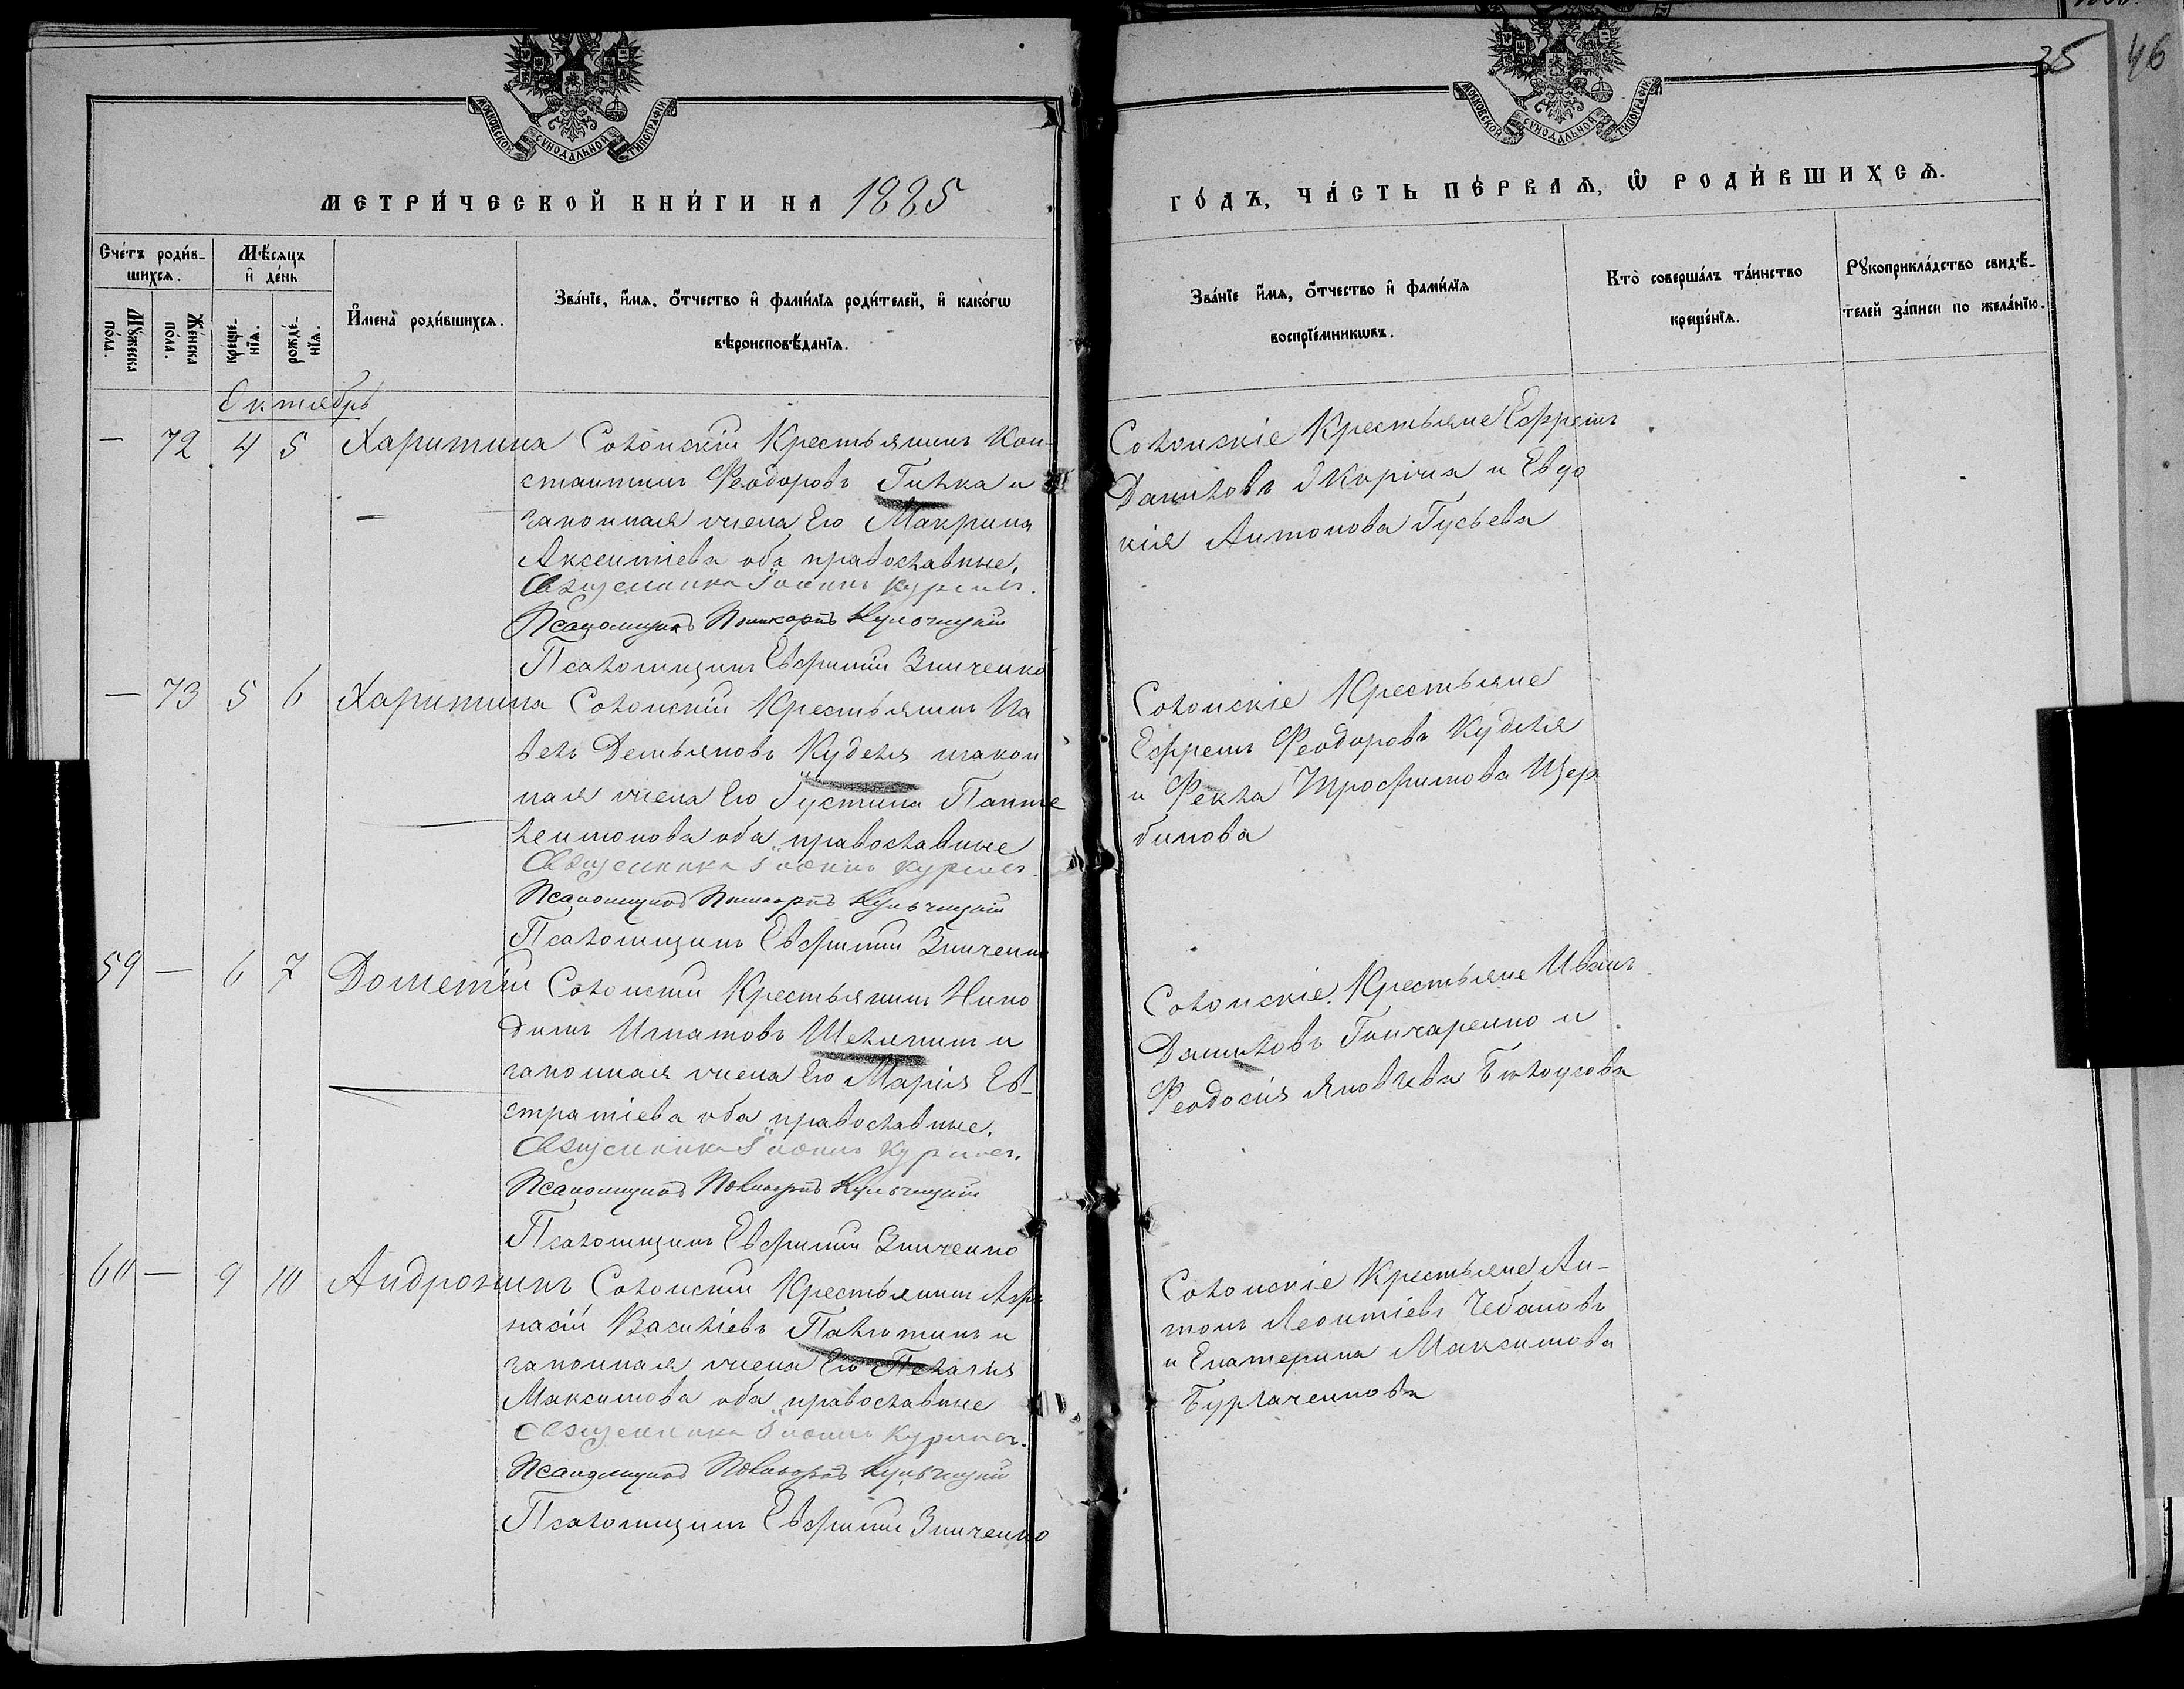 35
46
МОСКОВСКОЙ СѴНОДАЛЬНОЙ ТИПОГРАФІИ
МОСКОВСКОЙ СѴНОДАЛЬНОЙ ТИПОГРАФІИ
МЕТРИ́ЧЕСКОЙ КНИ́ГИ НА 1885
ГО́ДЪ, ЧА́СТЬ ПЕ́РВАѦ, Ѡ҆ РОДИ́ВШИХСѦ.
Сче́тъ роди́в-
шихсѧ.
Мѣ́сѧцъ
и҆ де́нь
Мꙋ́жеска
по́ла.
Же́нска
по́ла.
креще́-
нїѧ.
рожде́-
нїѧ.
И҆мена̀ роди́вшихсѧ.
Зва́нїе, и҆́мѧ, ѻ҆́тчество и҆ фами́лїѧ роди́телей, и҆ како́гѡ
вѣроисповѣ́данїѧ.
Зва́нїе и҆́мѧ, ѻ҆́тчество и҆ фами́лїѧ
воспрїе́мникѡвъ.
Кто̀ соверша́лъ та́инство
креще́нїѧ.
Рꙋкоприкла́дство свидѣ́-
телей за́писи по жела́нїю.
Октябрь
— 72 4 5 Харитина Солонскій Крестьянинъ Кон-
стантинъ Феодоровъ Гилка и
законная жена Его Макрина
Аксентіева оба православные.
Священника Іоаннъ Курилов.
Псаломщикъ Поликарпъ Кульчицкій
Псаломщикъ Евфимій Зинченко
Солонскіе Крестьяне Ефремъ
Даниловъ и Евдо
кія Антонова Гусьева
— 73 5 6 Харитина Солонскій Крестьянинъ Па
велъ Демьяновъ Куделя и закон
ная жена Его Іустина Панте
леимонова оба православные
Священника Іоаннъ Курилов.
Псаломщикъ Поликарпъ Кульчицкій
Псаломщикъ Евфимій Зинченко
Солонскіе Крестьяне
Ефремъ Феодоровъ Куделя
и Фекла Трофимова Щер
бинова
59 — 6 7 Дометій Солонскій Крестьянинъ Нико
димъ Игнатовъ и
законная жена Его Марія Ев-
стратіева оба православные.
Священника Іоаннъ Курилов.
Псаломщикъ Поликарпъ Кульчицкій
Псаломщикъ Евфимій Зинченко
Солонскіе Крестьяне Иванъ
Даниловъ Гончаренко и
Феодосія Яковлева Білоусова
60 — 9 10 Андроникъ Солонскій Крестьянинъ Афа
насій Василіевъ Палютинъ и
законная жена Его Пелагія
Максимова оба православные
Священника Іоаннъ Курилов.
Псаломщикъ Поликарпъ Кульчицкій
Псаломщикъ Евфимій Зинченко
Солонскіе Крестьяне Ан-
тонъ Леонтіевъ Чебановъ
и Екатерина Максимова
Бурлаченкова